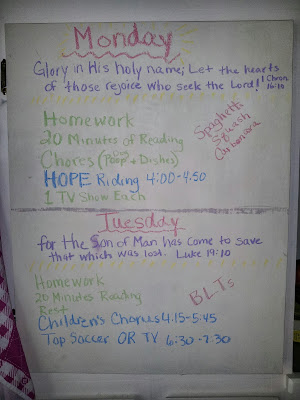 Monday
Glory in His holy name; Let the hearts
of those rejoice who seek the Lord! 1 Chron. 16:10
Homework
20 Minutes of Reading
Chores (Dog Poop + Dishes)
HOPE Riding 4:00-4:50
1 TV Show Each
Spaghetti
Squash
Carbonara
Tuesday
for the Son of Man has come to save
that which was lost. Luke 19:10
Homework
20 Minutes Reading
Rest
Children's Chorus 4:15-5:45
Top Soccer OR TV 6:30-7:30
BLTs